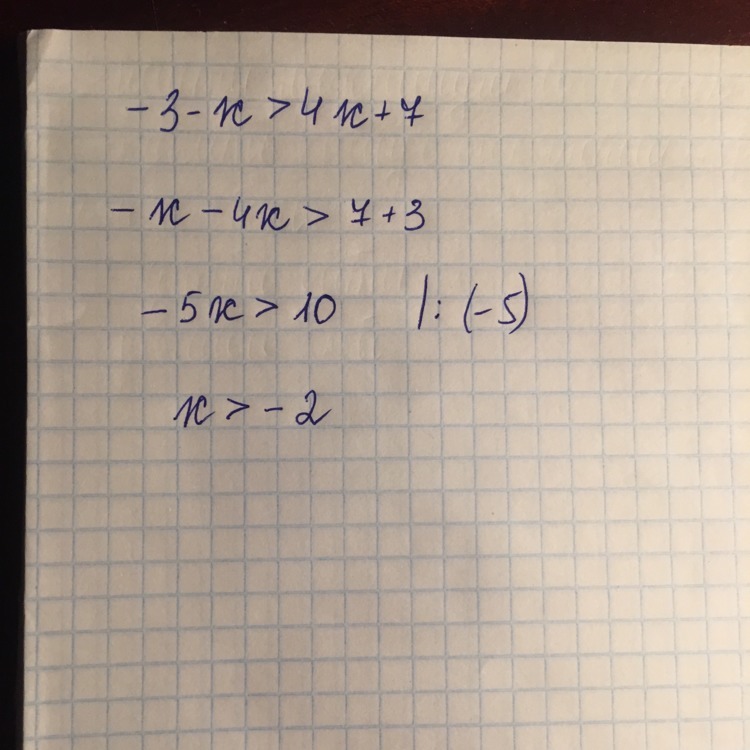 -3-x>4x+7
-x-4x>7+3
-5x>10 |:(-5)
x>-2